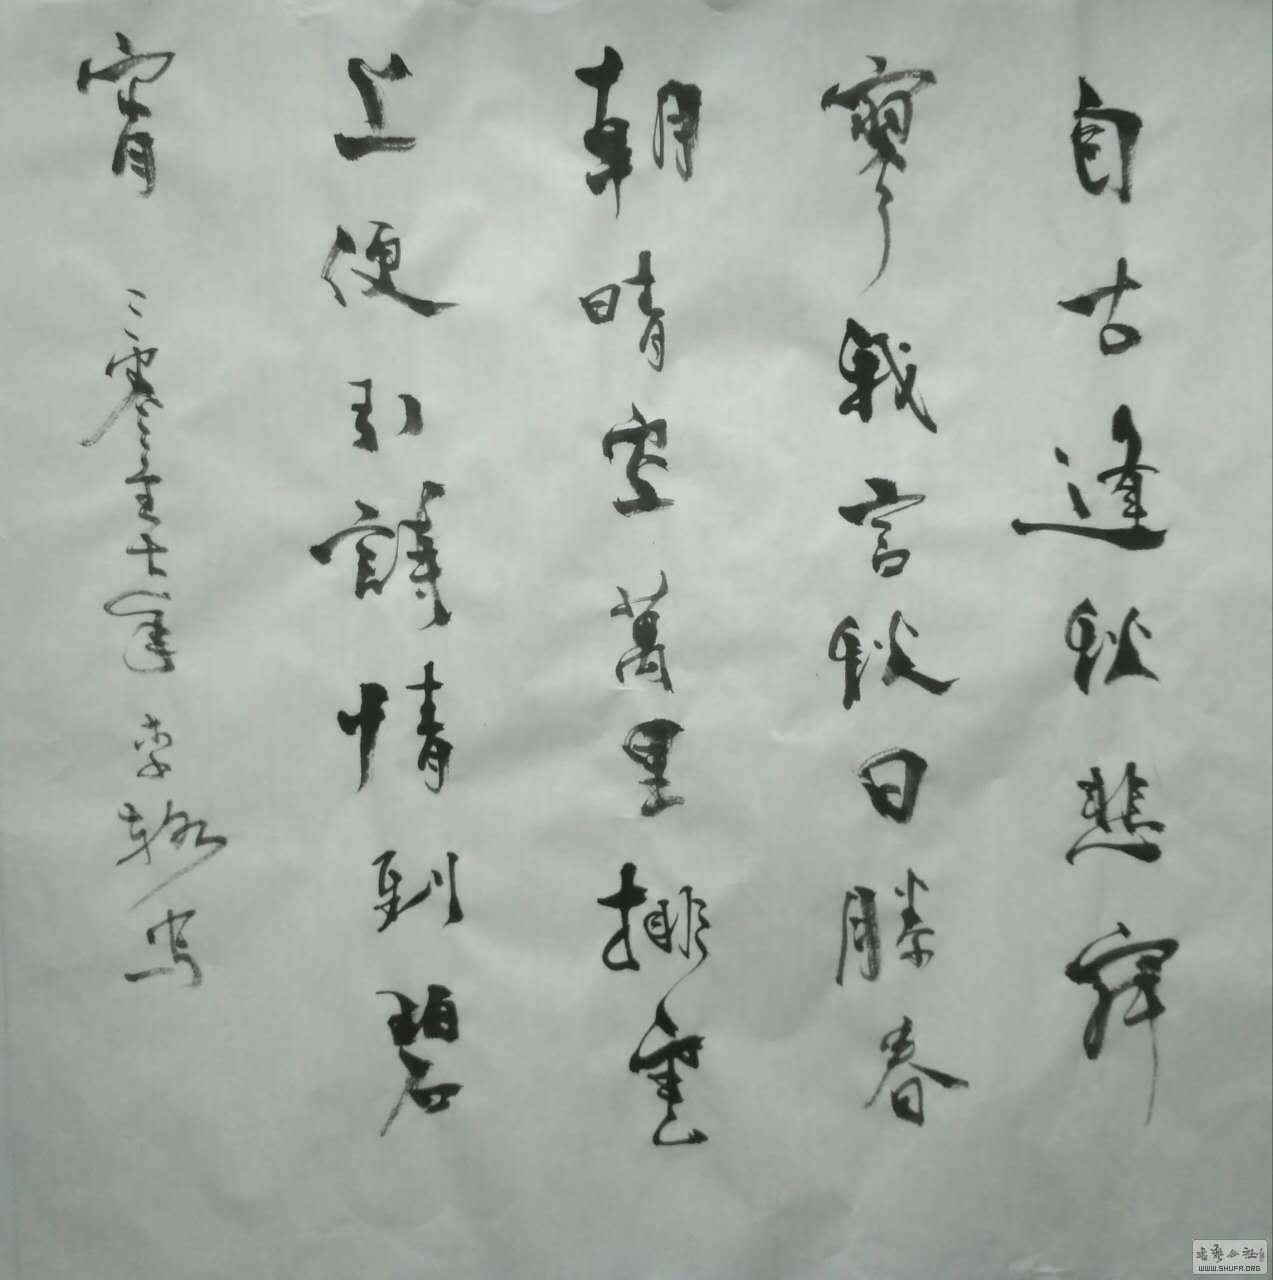 自古逢秋悲寂
寥我言秋日勝春
朝晴空萬里排雲
上便引詩情到碧
宵
二零年李写
书艺公社
WWW.SHUFA.ORG